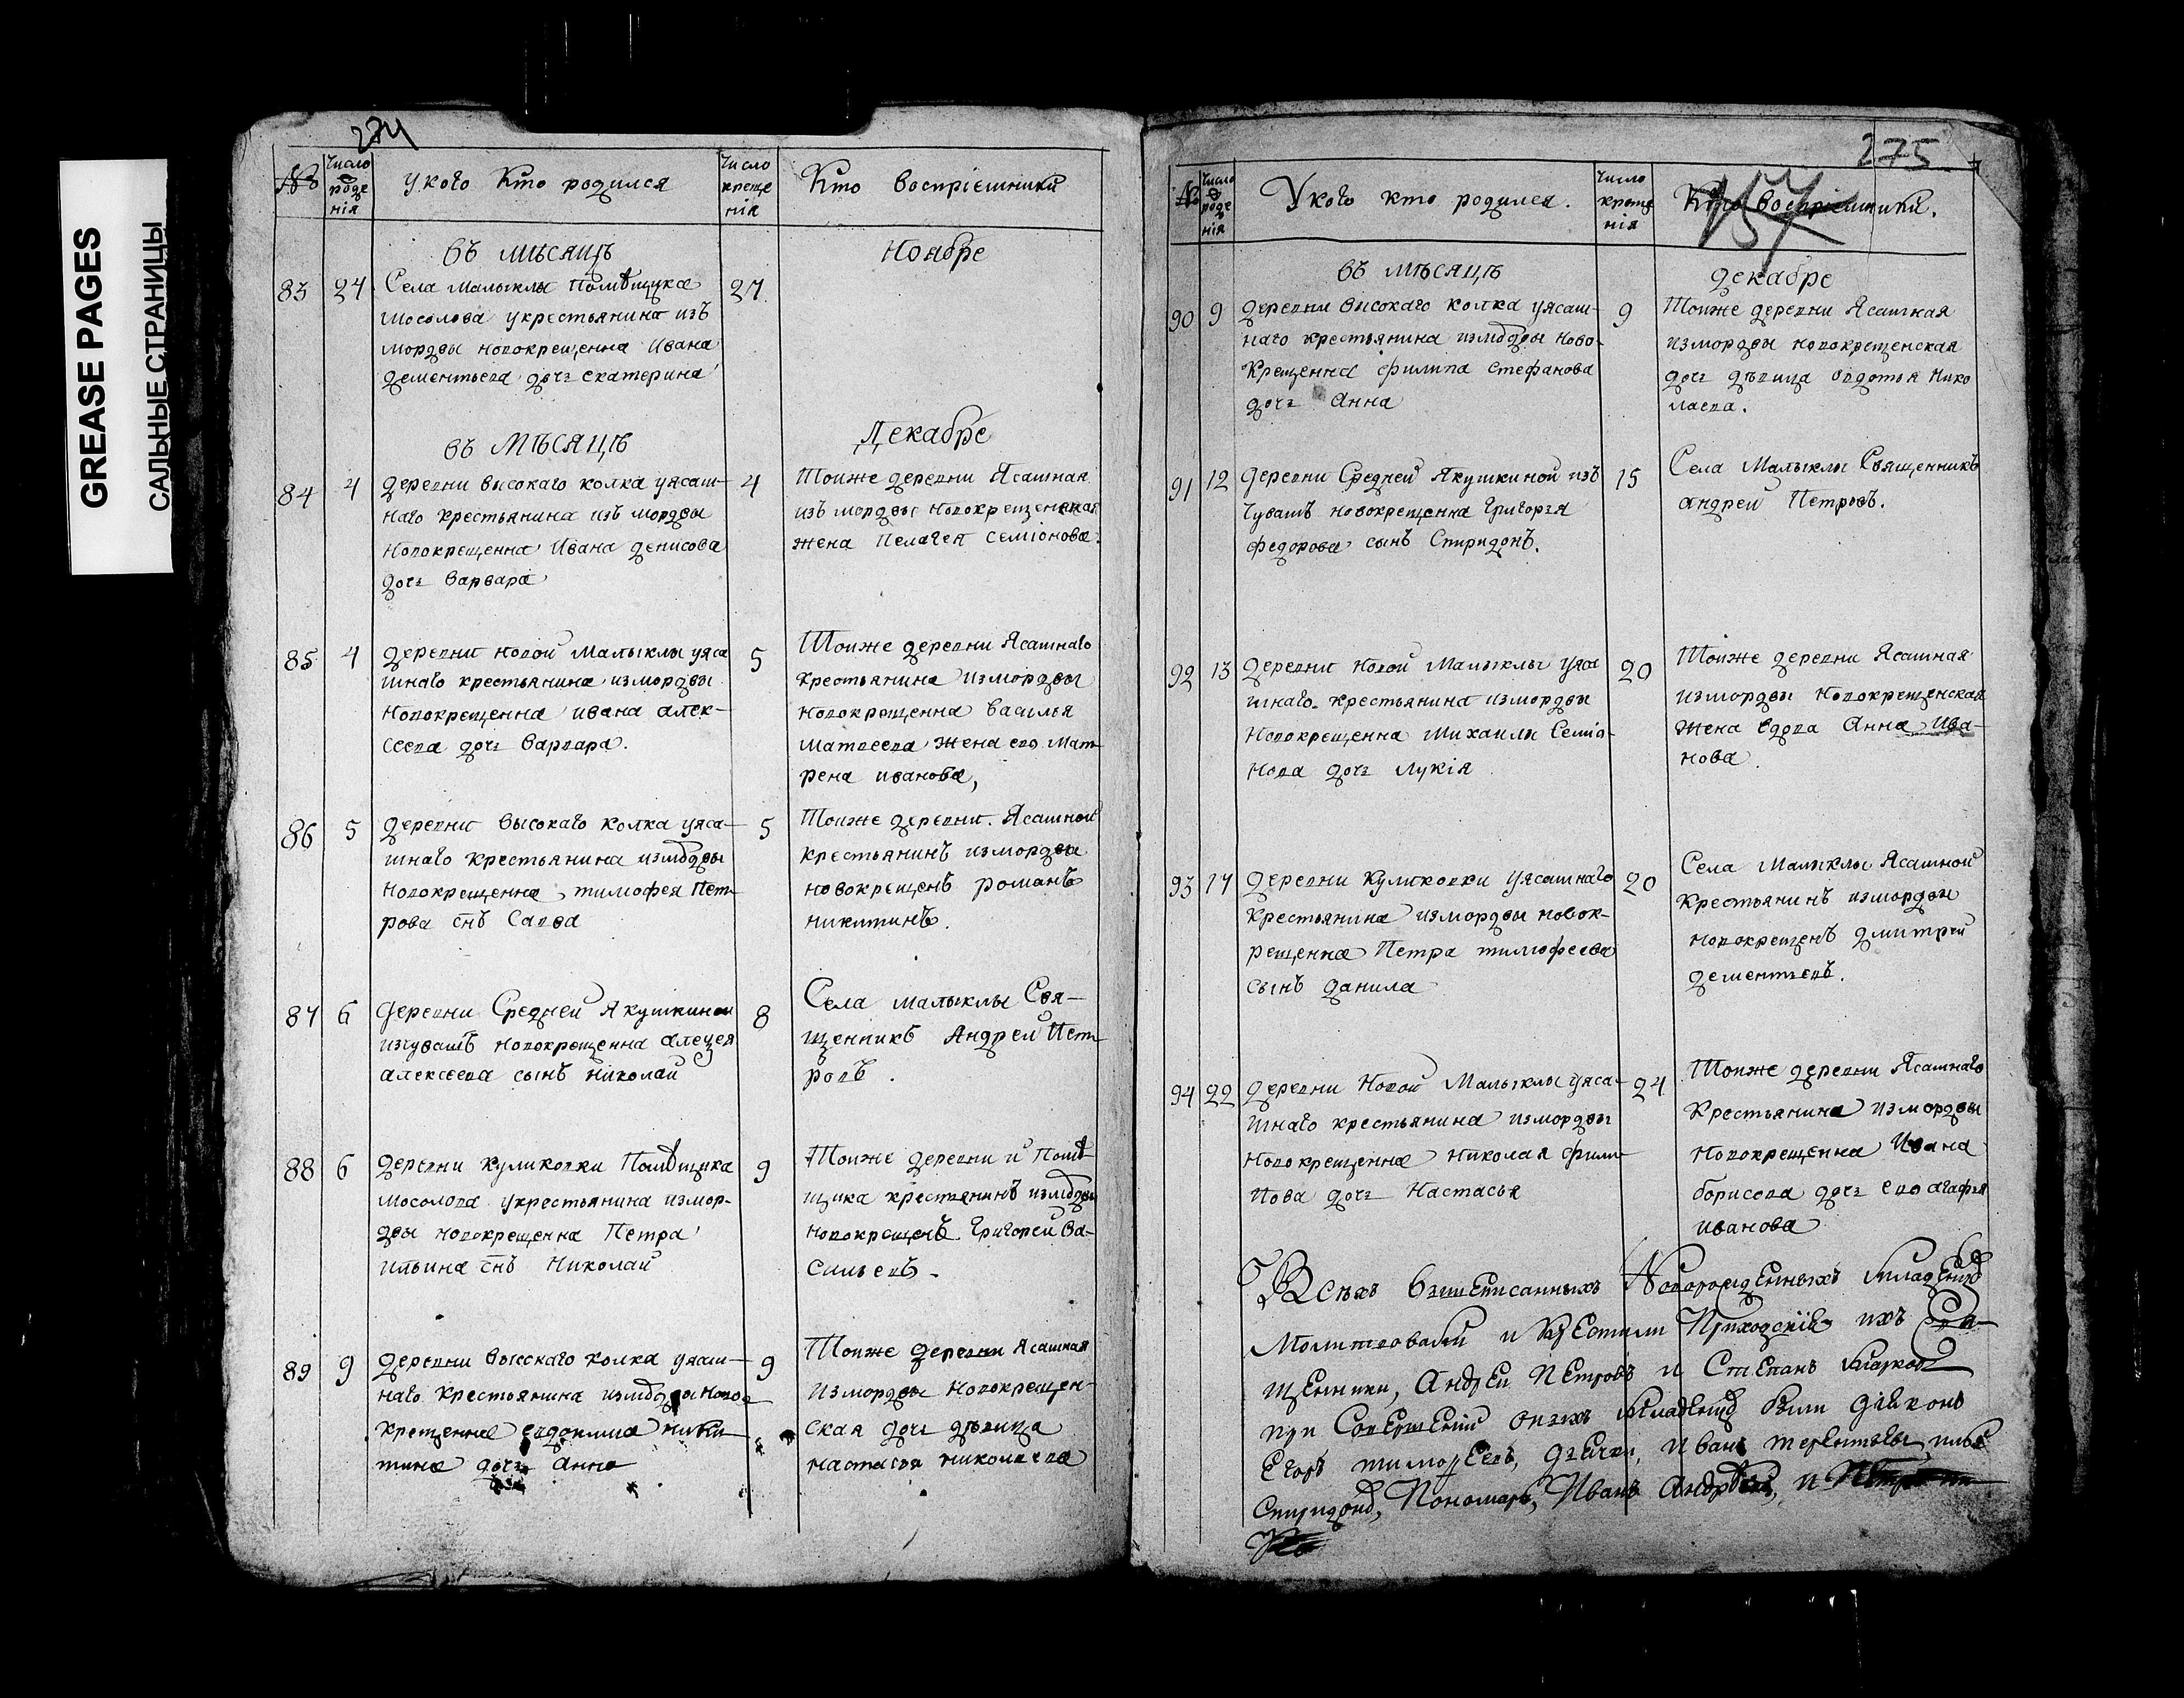 GREASE PAGES
САЛЬНЫЕ СТРАНИЦЫ
274
№
Число роде нія
у кого Кто родился
Число креще нія
Кто восприемники
въ мѣсяцѣ
Ноябре
83
24
Села малыклы Помѣщика
Мосолова укрестьянина изъ
мордвы новокрещенна Ивана
дементьева дочь екатерина
27
въ Мѣсяцѣ
Декабре
84
4
деревни высокаго колка уясаш-
наго крестьянина изъ мордвы
новокрещенна Ивана денисова
дочь варвара
4
Тоиже деревни Ясашная
изъ мордвы новокрещенная
жена Пелагея семіонова.
85
4
деревни новои Малыклы уяса
шнаго крестьянина измордвы
новокрещенна ивана алек-
сеева дочь варвара.
5
Тоиже деревни Ясашнаго
крестьянина измордвы
новокрещенна василья
матвеева жена ево мат-
рена иванова,
86
5
деревни высокаго колка уяса-
шнаго крестьянина измордвы
новокрещенна тимофея Пет-
рова снъ Савва
5
Тоиже деревни. Ясашной
крестьянинъ измордвы
новокрещенъ романъ
никитинъ.
87
6
деревни Средней Якушкинои
изчувашъ новокрещенна
алексеева сынъ николаи
8
Села малыклы Свя-
щенникъ Андреи Пет-
ровъ.
88
6
деревни куликовки Помѣщика
мосолова укрестьянина измор-
двы новокрещенна Петра
ильина снъ Николаи
9
Тоиже деревни и Помѣ-
щика крестянинъ измордвы
новокрещенъ Григореи Ва-
сильевъ -
89
9
деревни высокаго колка уясаш-
наго крестьянина измордвы ново-
крещенна евдокима ники
тина дочь Анна
9
Тоиже деревни Ясашная
измордвы новокрещен-
ская дочь дѣвица
настасья николаева
275
157
№
Число роде нія
Укого кто родился.
Число креще нія
Кто восприемники.
въ мѣсяцѣ
декабре
90
9
деревни высокаго колка уясаш-
наго крестьянина измордвы ново-
крещенна филипа стефанова
дочь Анна
9
Тоиже деревни Ясашная
измордвы новокрещенская
дочь дѣвица овдотья Нико
лаева.
91
12
деревни Средней Якушкиной изъ
Чувашъ новокрещенна Григорья
федорова сынъ Спиридонъ.
15
Села Малыклы Священникъ
андреи Петровъ.
92
13
деревни новой Малыклы уяса
шнаго крестьянина измордвы
новокрещенна михаилы Семіо-
нова дочь Лукія
20
Тоиже деревни Ясашная
измордвы новокрещенская
жена вдова Анна Ива-
нова.
93
17
деревни куликовки уясашнаго
крестьянина измордвы новок-
рещенна Петра тимофеева
сынъ данила
20
Села Малыклы Ясашной
Крестьянинъ измордвы
новокрещенъ дмитреи
дементьевъ.
94
22
деревни Новои Малыклы уяса-
шнаго крестьянина измордвы
новокрещенна николая фили-
пова дочь Настасья
24
Тоиже деревни Ясашнаго
Крестьянина измордвы
новокрещенна Ивана
борисова дочь ево агафья
иванова
Всѣхъ вышеписанныхъ Новорожденныхъ младенцовъ
Молитвовали и крестили Приходскіе ихъ Свя-
щенники, Андреи Петровъ и Стефанъ Марковъ
при Совершеніи оныхъ младенцовъ были діаконъ
Егоръ тимофеевъ, дьячки, Иванъ терентьевъ,
Спиридонъ, Пономарь, Иванъ Андрѣевъ, и